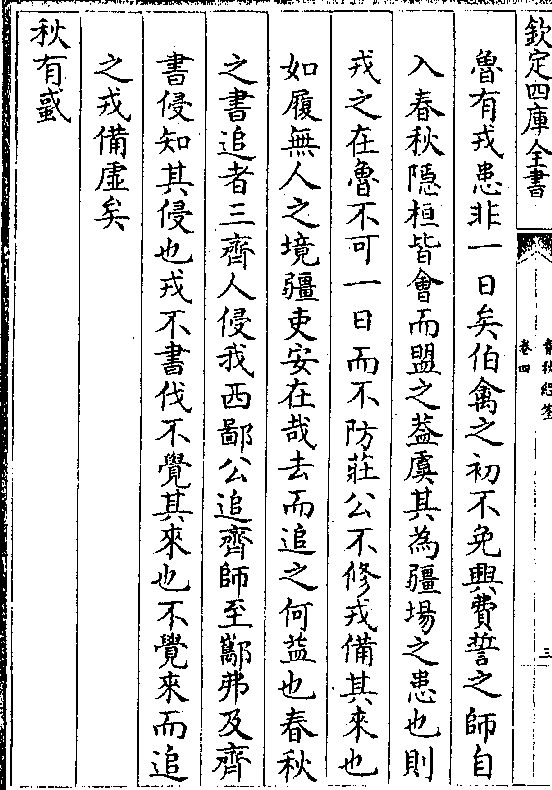 欽定四庫全書
春秋經筌
卷四
三
魯有戎患非一日矣伯禽之初不免興費誓之師自
入春秋隱桓皆會而盟之葢虞其為疆埸之患也則
戎之在魯不可一日而不防莊公不修戎備其來也
如履無人之境疆吏安在哉去而追之何益也春秋
之書追者三齊人侵我西鄙公追齊師至酅弗及齊
書侵知其侵也戎不書伐不覺其來也不覺來而追
之戎備虛矣
秋有蜮